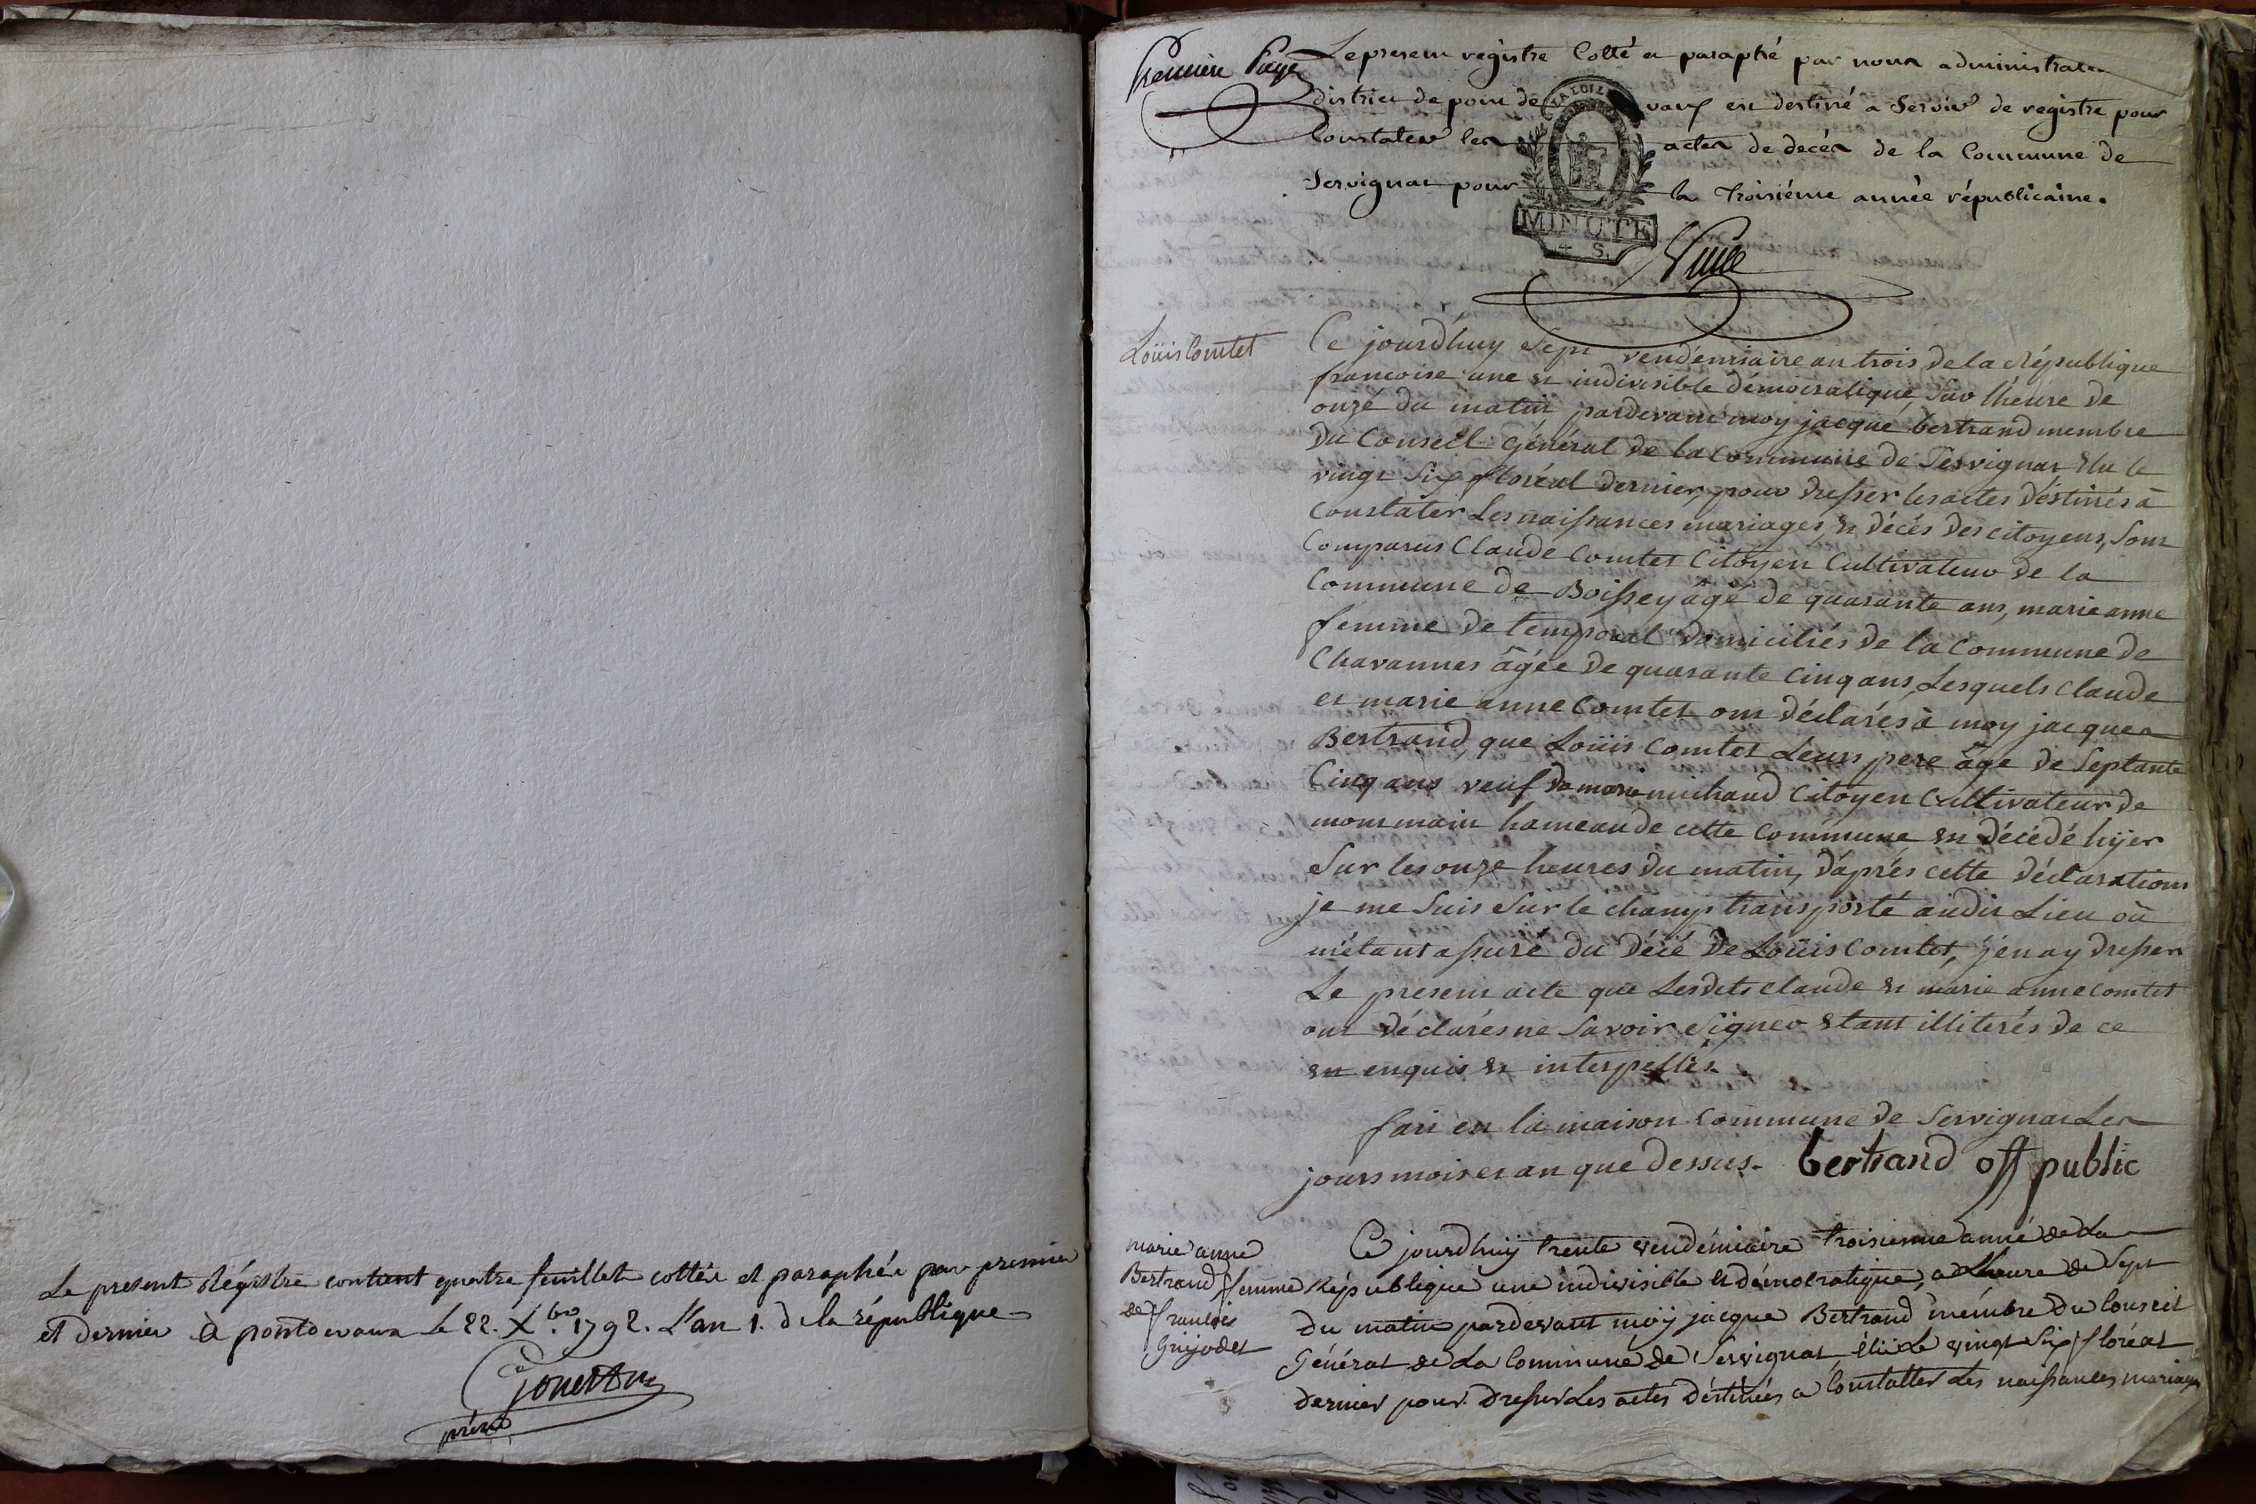 Le present Régistre contient quatre feuillets cottés et paraphés par premier
et dernier à pontdevaux le 22. Xbre. 1792. L'an 1. de la république
prést
Premiere Page
Le present registre Cotté et paraphé par nous administrateur
district de pont de vaux est destiné a Servir de registre pour
Constater les actes de decès de la Commune de
Servignat pour la troisiéme année républicaine.
LA LOI
MINUTE
4 S.
Loüis Comtet
Ce jourd'huy Sept vendémiaire an trois de la République
francoise une et indivisible démocratique, Sur l'heure de
onze du matin pardevant moy jacque bertrand membre
Du Conseil Général de la Commune de Servignat Elu le
vingt Six floréal dernier, pour dresser les actes déstinés à
Constater Les naissances mariages, et décès des citoyens, Sont
Comparus Claude Comtet Citoyen Cultivateur de la
Commune de Boissey âgé de quarante ans, marie anne
femme de temporal domiciliés de la Commune de
Chavannes âgée de quarante Cinq ans, Lesquels Claude
et marie anne Comtet ont déclarés à moy jacques
Bertrand, que Loüis Comtet Leurs pere âgé de Septante
Cinq ans veuf de marie michaud Citoyen Cultivateur de
montmain hameau de cette Commune est décédé hÿer
Sur les onze heures du matin, d'aprés cette déclarations
je me Suis Sur le champ transporté audit Lieu où
m'étant assuré du décé de Loüis Comtet, j'en ay dresser
Le present acte que Lesdits claude et marie anne comtet
ont déclarés ne Savoir Signer Etant illiterés de ce
en enquis et interpellés.
fait en la maison Commune de Servignat Les
jours mois et an que dessus. bertrand off public
marie anne
Bertrand femme
de francois
Guÿodet
Ce jourdhuÿ trente vendémiaire troisieme anné de La
République une indivisible et démocratique, a Lheure de Sept
du matin pardevant moÿ jacque Bertrand membre du Conseil
Général de La Commune de Servignat élu le vingt Six floréal
dernier pour dresser Les actes déstinés a Constatter Les naissances mariages